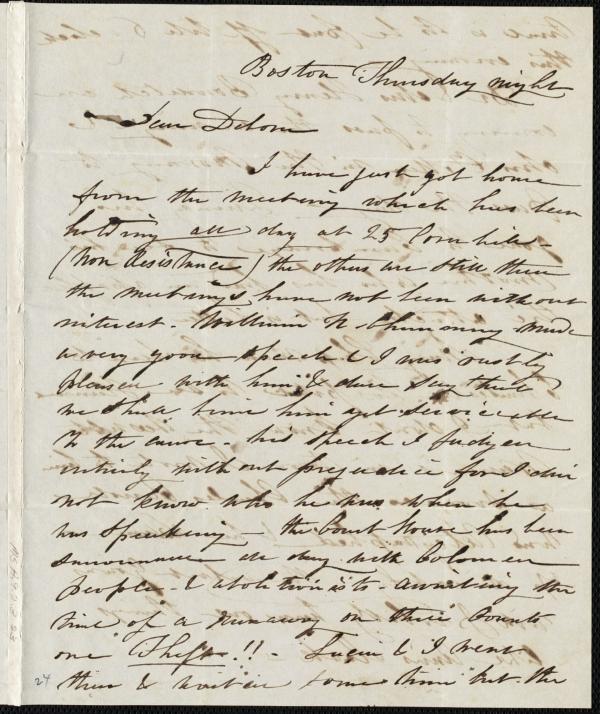 Boston Thursday night
Dear Debora
I have just got home
from the meeting which has been
holding all day at 25 Cornhill -
(Non Resistance) the others are still there
the meetings have not been without
interest - William H. Channing made
a very good speech & I was vastly
pleased with him & dare say that
we shall time him yet serviceable
to the cause - his speech I judged
entirely without prejudice for I did
not know who he was when he
was speaking - the Court House has been
surrounded all day with Colored
people & abolitionists - awaiting the
time of a runaway on three Counts
one Theft!! - Lucia & I went
there & waited some time but the
24